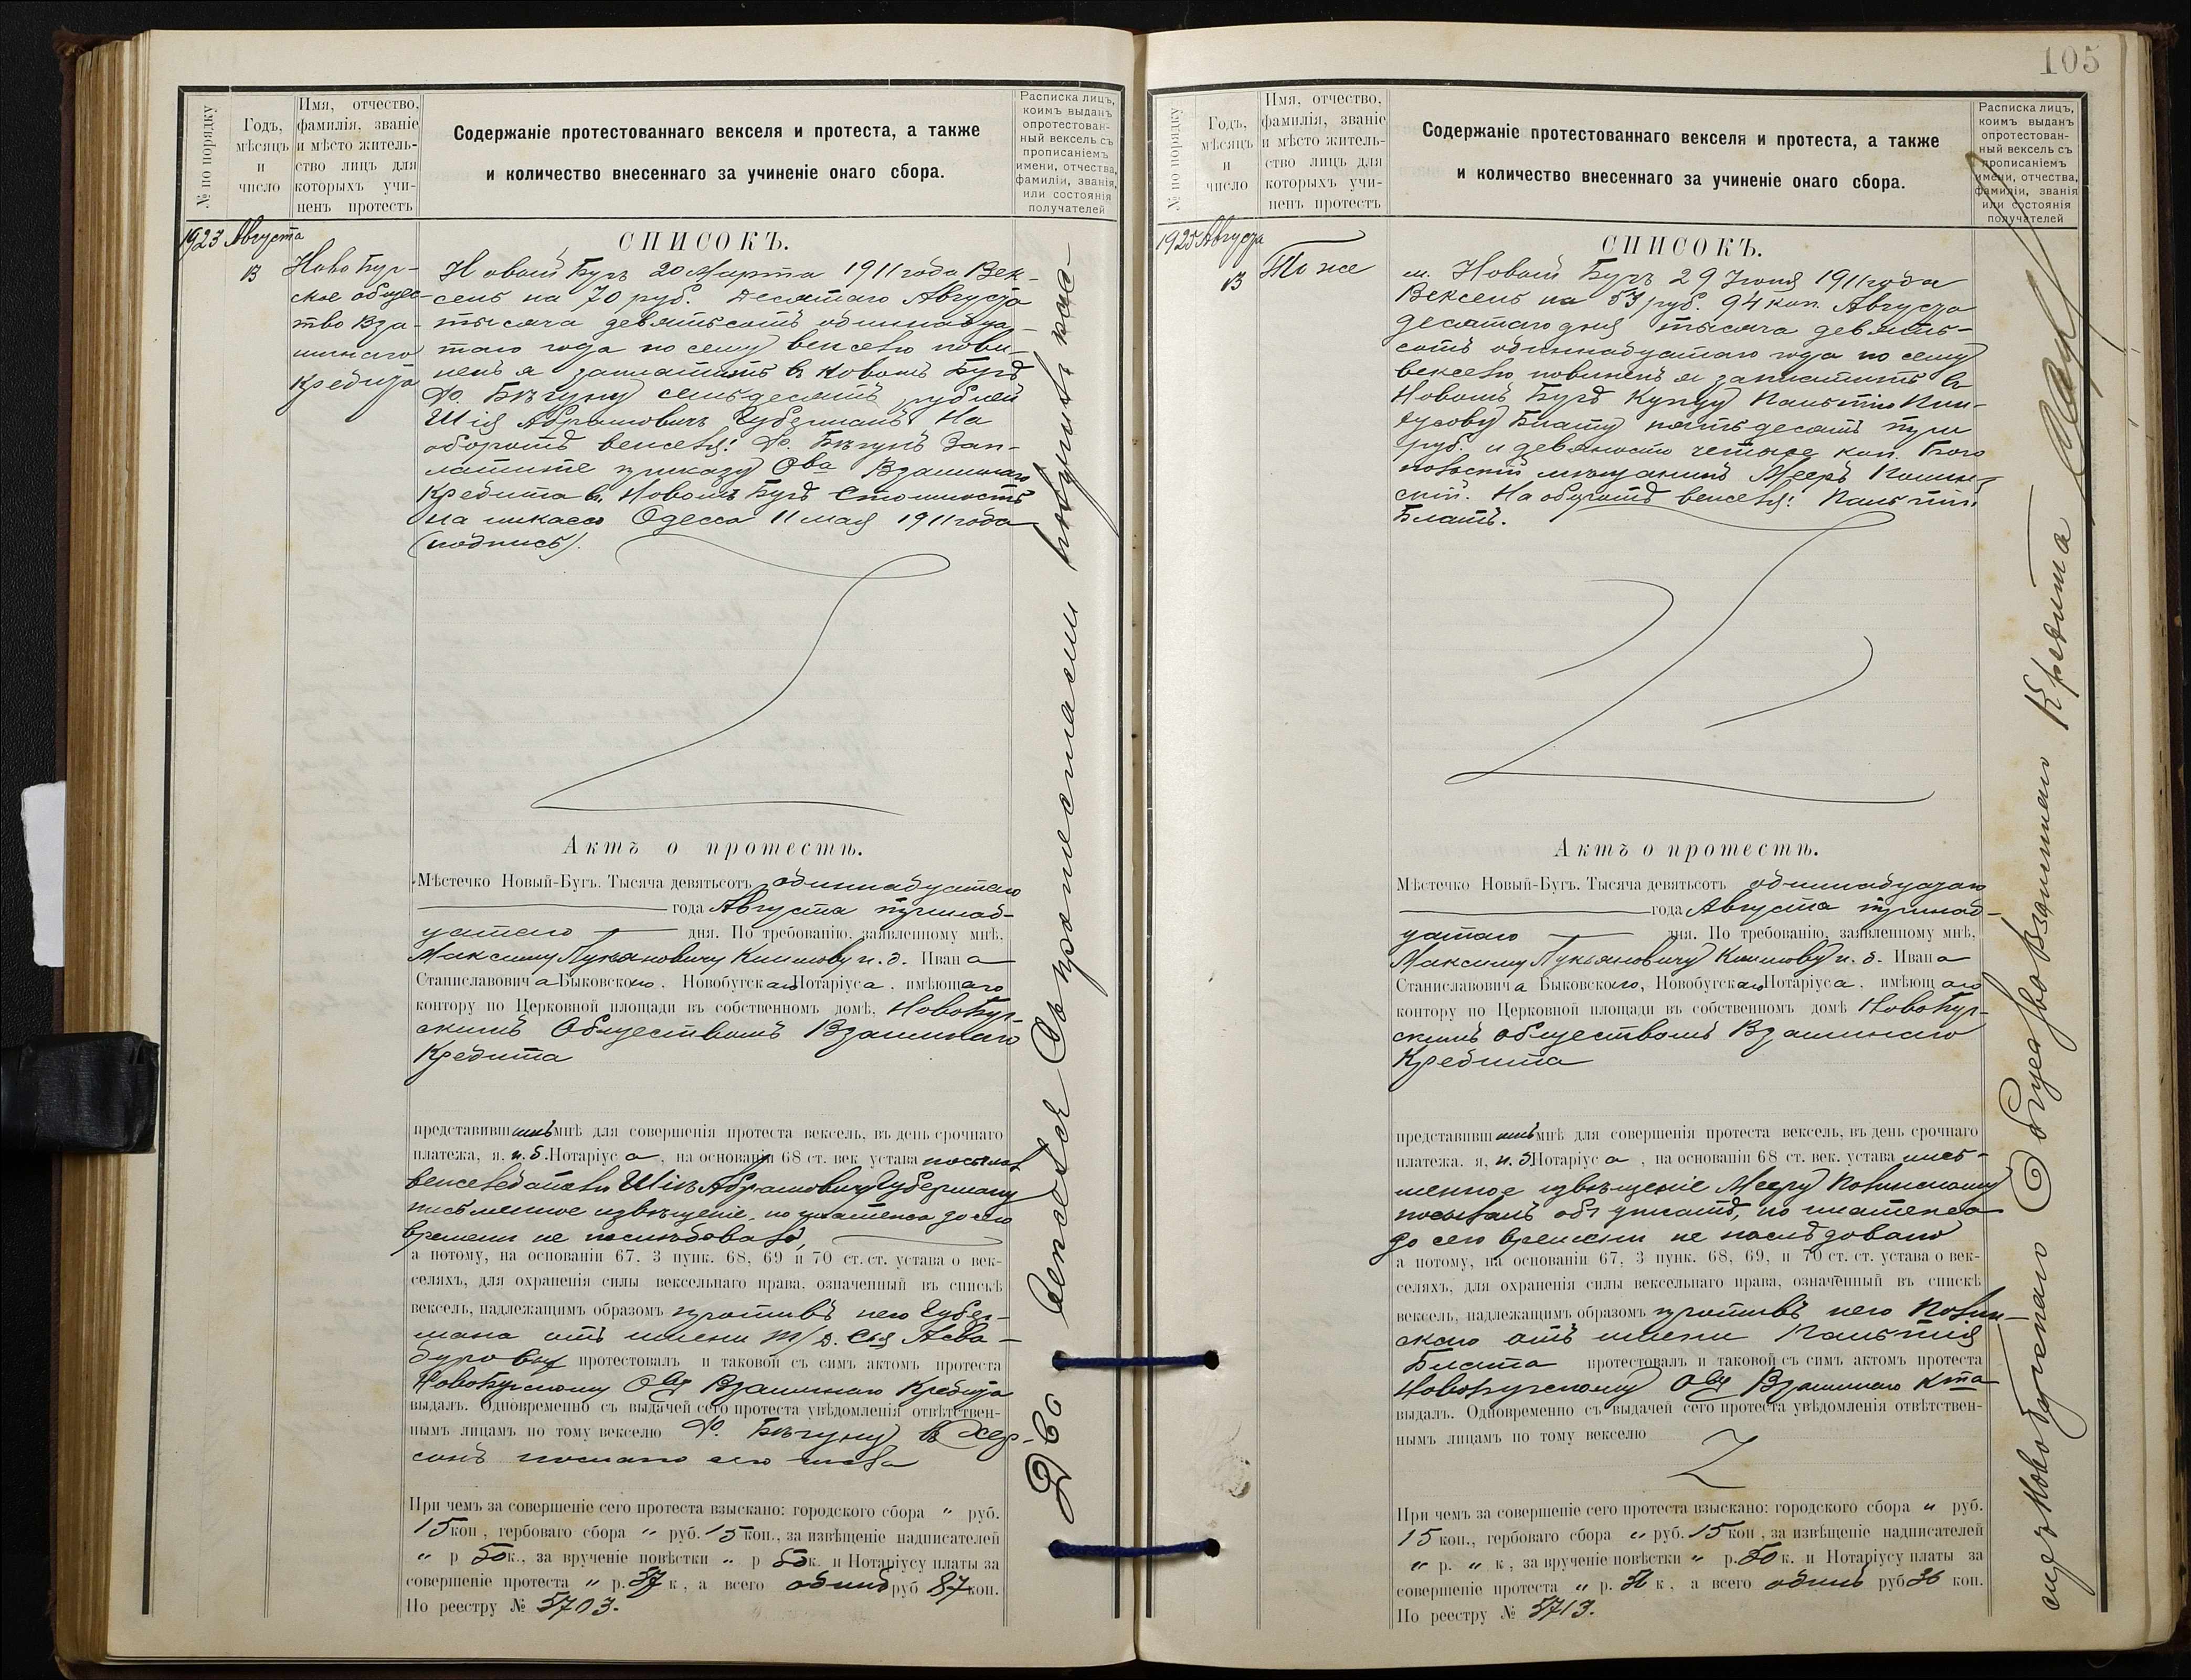 № по порядку
Годъ, мѣсяцъ и число
Имя, отчество, фамилія, званіе и мѣсто жительство лицъ для которыхъ учиненъ протестъ
Содержаніе протестованнаго векселя и протеста, а также
и количество внесеннаго за учиненіе онаго сбора.
Расписка лицъ, коимъ выданъ опротестованный вексель съ прописаніемъ имени, отчества, фамиліи, званія, или состоянія получателей
1923 Августа
13
Ново Буг-
ское общес-
тво Вза-
имнаго
Кредита
СПИСОКЪ.
Новый Бугъ 20 Марта 1911 года Век-
сель на 70 руб. Десятаго Августа
тысяча девятьсотъ одиннадца-
таго года по сему векселю пови-
ненъ я заплатить въ Новомъ Бугѣ
Ф. Бѣгуну семьдесятъ рублей
Шія Абрамовичъ Губерманъ. На
оборотѣ векселя: Ф. Бѣгунъ Зап-
латите приказу Ова Взаимнаго
Кредита въ Новомъ Бугѣ Стоимость
на инкассо Одесса 11 мая 1911 года
(подпись).
Актъ о протестѣ.
Мѣстечко Новый-Бугъ. Тысяча девятьсотъ одиннадцатаго
года Августа тринад-
цатаго дня. По требованію, заявленному мнѣ,
Максиму Лукьяновичу Климову и. д. Ивана
Станиславовича Быковскаго, Новобугскаго Нотаріуса, имѣющаго
контору по Церковной площади въ собственномъ домѣ, Новобуг-
скимъ Обществомъ Взаимнаго
Кредита
представившимъ мнѣ для совершенія протеста вексель, въ день срочнаго
платежа, я, и. д. Нотаріуса, на основаніи 68 ст. век. устава послалъ
векселедателю Шіѣ Абрамовичу Губерману
письменное извѣщеніе, но платежа до сего
времени не послѣдовало,
а потому, на основаніи 67, 3 пунк. 68, 69 и 70 ст. ст. устава о век-
селяхъ, для охраненія силы вексельнаго права, означенный въ спискѣ
вексель, надлежащимъ образомъ противъ него Губер-
мана отъ имени
протестовалъ и таковой съ симъ актомъ протеста
Новобугскому Ову Взаимнаго Кредита
выдалъ. Одновременно съ выдачей сего протеста увѣдомленія отвѣтствен-
нымъ лицамъ по тому векселю Ф. Бѣгуну въ Хер-
сонъ послано сего числа
При чемъ за совершеніе сего протеста взыскано: городского сбора " руб.
15 коп., гербоваго сбора " руб. 15 коп., за извѣщеніе надписателей
" р 50 к., за врученіе повѣстки " р 50 к. и Нотаріусу платы за
совершеніе протеста " р. 57 к., а всего одинъ руб 87 коп.
По реестру № 5703.
Два векселя съ протестами получилъ кас-
105
№ по порядку
Годъ, мѣсяцъ и число
Имя, отчество, фамилія, званіе и мѣсто жительство лицъ для которыхъ учиненъ протестъ
Содержаніе протестованнаго векселя и протеста, а также
и количество внесеннаго за учиненіе онаго сбора.
Расписка лицъ, коимъ выданъ опротестованный вексель съ прописаніемъ имени, отчества, фамиліи, званія или состоянія получателей
1925 Августа
13
То же
СПИСОКЪ.
м. Новый Бугъ 29 Іюня 1911 года
Вексель на 53 руб. 94 коп. Августа
десятаго дня тысяча девять-
сотъ одиннадцатаго года по сему
векселю повиненъ я заплатить въ
Новомъ Бугѣ Купцу Палтію Пин-
хусову Блату пятьдесятъ три
руб. и девяносто четыре коп.
мѣщанинъ Мееръ
На оборотѣ векселя:
Блатъ.
Актъ о протестѣ.
Мѣстечко Новый-Бугъ. Тысяча девятьсотъ одиннадцатаго
года Августа тринад-
цатаго дня. По требованію, заявленному мнѣ,
Максиму Лукьяновичу Климову и. д. Ивана
Станиславовича Быковскаго, Новобугскаго Нотаріуса, имѣющаго
контору по Церковной площади въ собственномъ домѣ Новобуг-
скимъ обществомъ Взаимнаго
Кредита
представившимъ мнѣ для совершенія протеста вексель, въ день срочнаго
платежа. я, и. д. Нотаріуса, на основаніи 68 ст. век. устава пись-
менное извѣщеніе Мееру
посылалъ объ уплатѣ, но платежа
до сего времени не послѣдовало
а потому, на основаніи 67, 3 пунк. 68, 69, и 70 ст. ст. устава о век-
селяхъ, для охраненія силы вексельнаго права, означенный въ спискѣ
вексель, надлежащимъ образомъ противъ него
отъ имени
Блата протестовалъ и таковой съ симъ актомъ протеста
Новобугскому Ову Взаимнаго Кта
выдалъ. Одновременно съ выдачей сего протеста увѣдомленія отвѣтствен-
нымъ лицамъ по тому векселю
При чемъ за совершеніе сего протеста взыскано: городского сбора " руб.
15 коп., гербоваго сбора " руб. 15 коп., за извѣщеніе надписателей
" р. " к., за врученіе повѣстки " р. 50 к. и Нотаріусу платы за
совершеніе протеста " р. 56 к., а всего одинъ руб 36 коп.
По реестру № 5713.
сиръ Новобугскаго Общества Взаимнаго Кредита